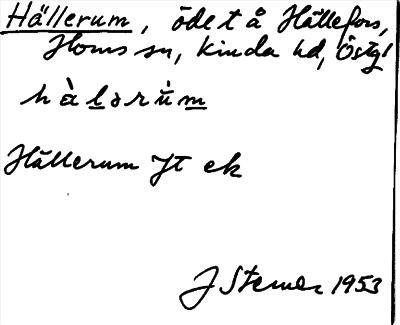 Hällerum, ödet å Hällefors,
Horns sn, Kinda hd, Östg!
hàlərúm
Hällerum Jt ek
J Stemer 1953